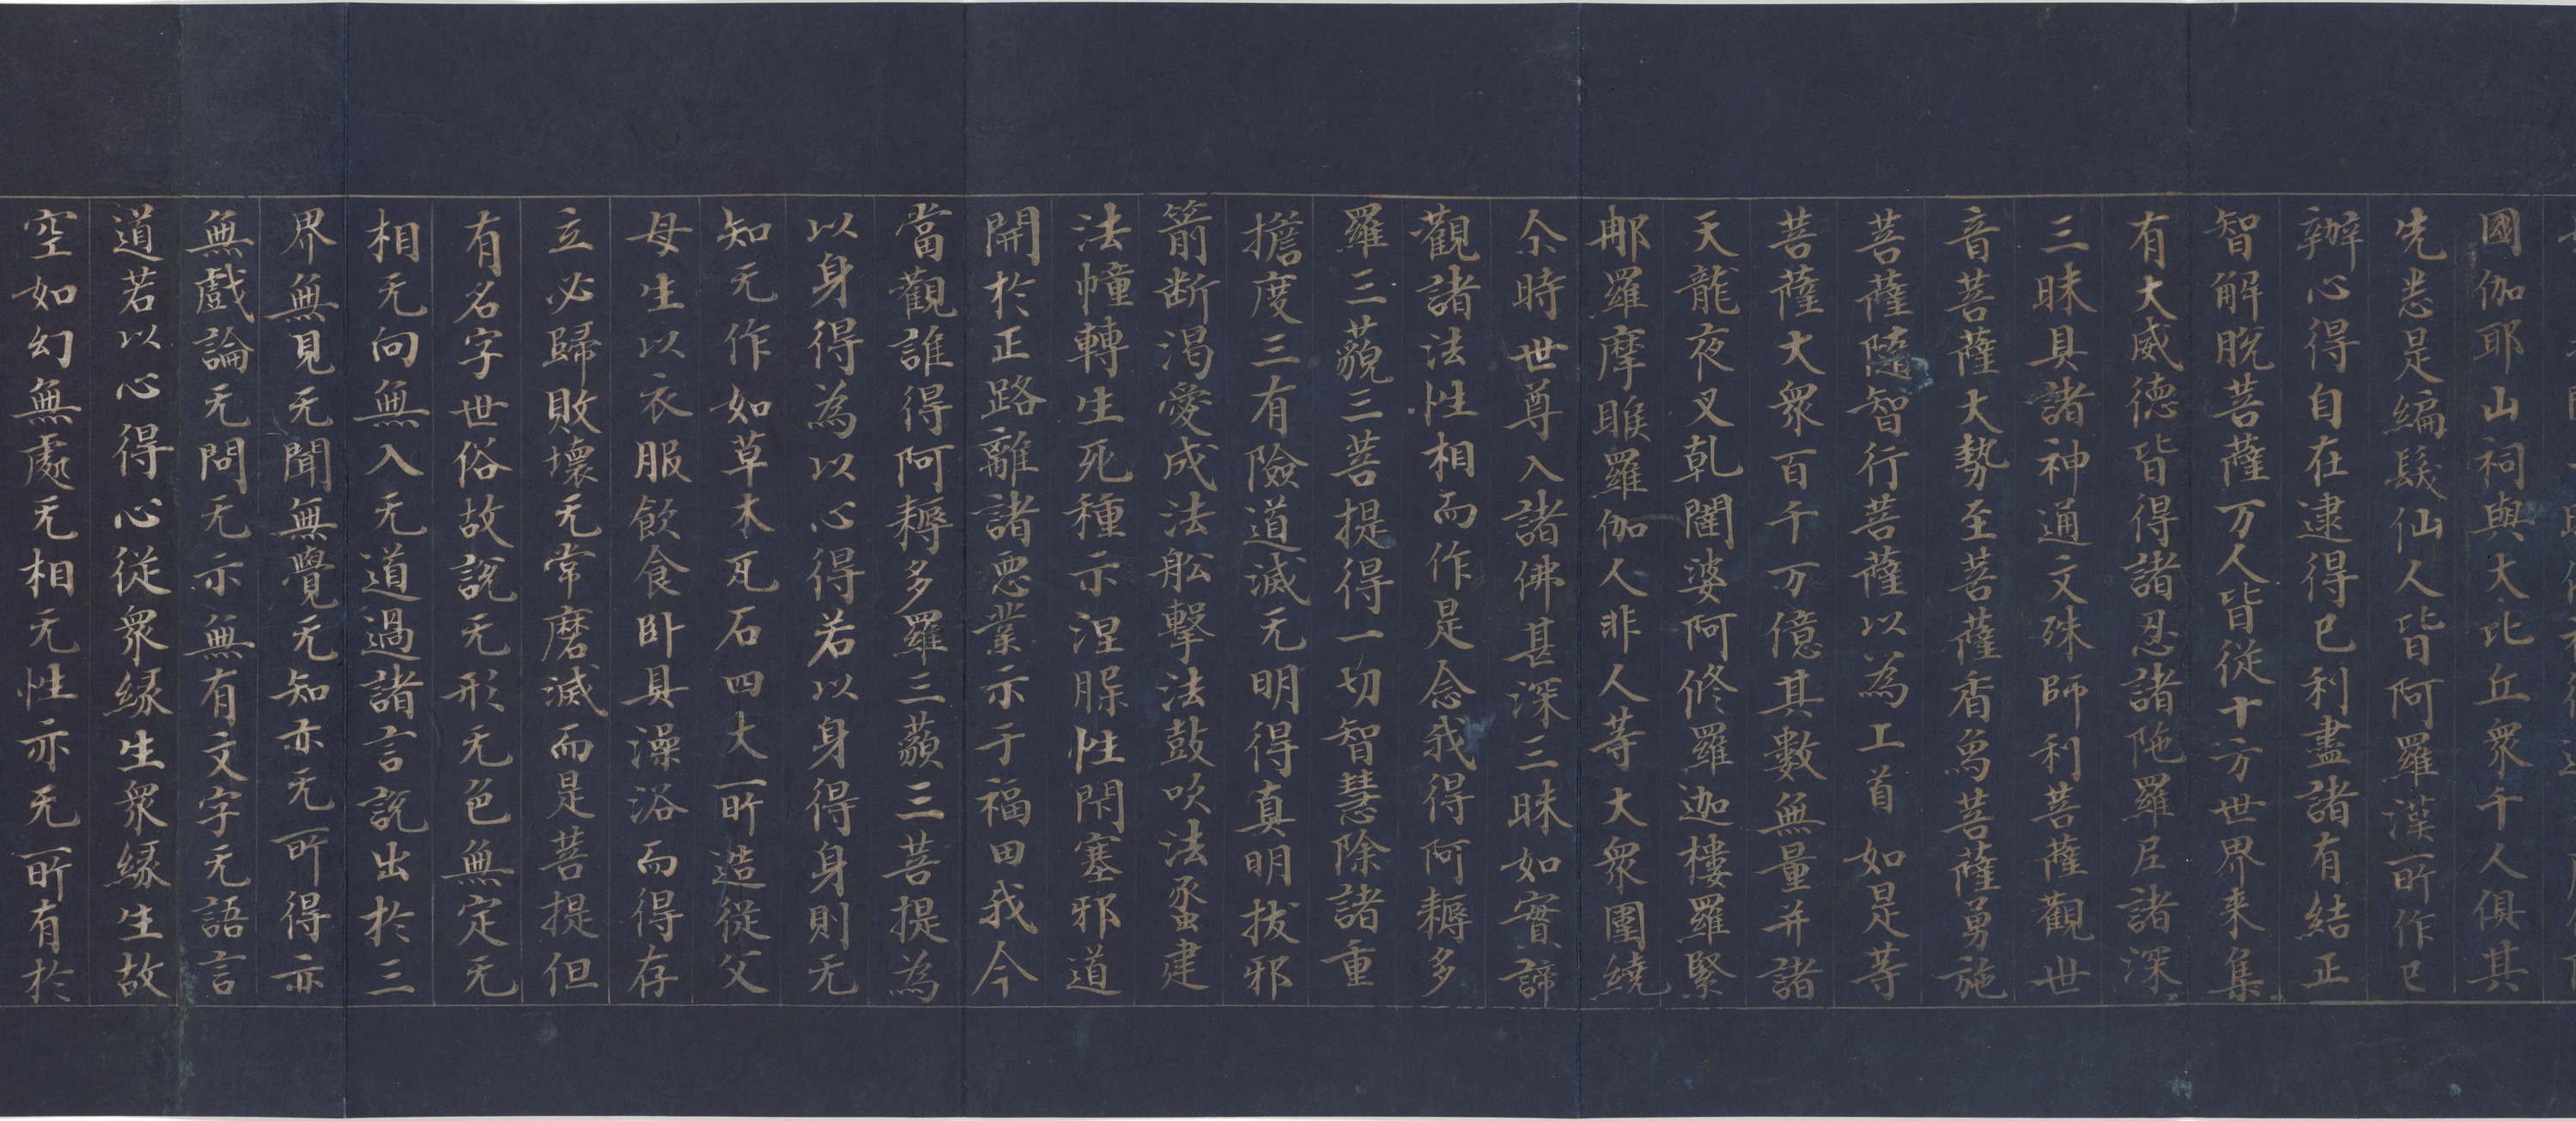 國伽耶山祠與大比丘衆千人俱其
先悉是編髮仙人皆阿羅漢所作已
辦心得自在逮得已利盡諸有結正
智解脫菩薩万人皆從十方世界来集
有大威德皆得諸忍諸陁羅尼諸深
三昧具諸神通文殊師利菩薩觀世
音菩薩大勢至菩薩香象菩薩勇施
菩薩隨智行菩薩以為工首如是等
菩薩大衆百千万億其數無量并諸
天龍夜叉乹闥婆阿修羅迦樓羅緊
那羅摩睺羅伽人非人等大衆圍繞
尒時世尊入諸佛甚深三昧如實諦
觀諸法性相而作是念我得阿耨多
羅三藐三菩提得一切智慧除諸重
擔度三有險道滅无明得真明拔邪
箭断渴愛成法舩擊法鼓吹法蠡建
法幢轉生死種示涅槃性閇塞邪道
開於正路離諸惡業示于福田我今
當觀誰得阿耨多羅三藐三菩提為
以身得為以心得若以身得身則无
知无作如草木瓦石四大所造從父
母生以衣服飲食卧具澡浴而得存
立必歸敗壞无常磨滅而是菩提但
有名字世俗故說无形无色無定无
相无向無入无道過諸言說出於三
界無見无聞無覺无知亦无所得亦
無戲論无問无示無有文字无語言
道若以心得心從衆緣生衆緣生故
空如幻無處无相无性亦无所有於